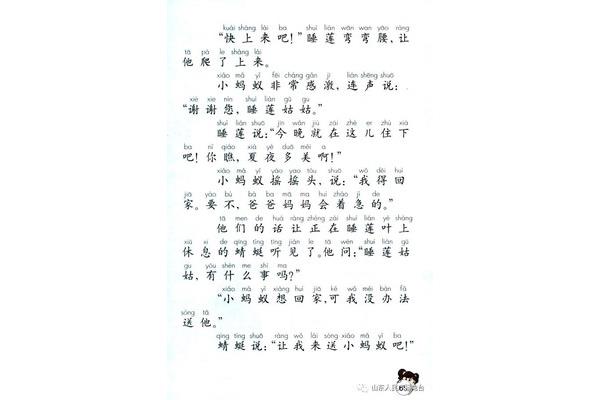 kuài shàng lái ba shuì lián wān wan yāo ràng
“快上来吧!”睡莲弯弯腰,让
tā pá le shàng lái
他爬了上来。
xiǎo mǎ yǐ fēi cháng gǎn jī lián shēng shuō
小蚂蚁非常感激,连声说:
xiè xie nín shuì lián gū gu
“谢谢您,睡莲姑姑。”
shuì lián shuō jīn wǎn jiù zài zhè er zhù xià
睡莲说:“今晚就在这儿住下
ba nǐ qiáo xià yè duō měi a
吧!你瞧,夏夜多美啊!”
xiǎo mǎ yǐ yáo yao tóu shuō wǒ děi huí
小蚂蚁摇摇头,说:“我得回
jiā yào bù bà ba mā ma huì zháo jí de
家。要不,爸爸妈妈会着急的。”
tā men de huà ràng zhèng zài shuì lián yè shàng
他们的话让正在睡莲叶上
xiū xi de qīng tíng tīng jiàn le tā wèn shuì lián gū
休息的蜻蜓听见了。他问:“睡莲姑
gu yǒu shén me shì ma
姑,有什么事吗?”
xiǎo mǎ yǐ xiǎng huí jiā kě wǒ méi bàn fǎ
“小蚂蚁想回家,可我没办法
sòng tā
送他。”
qīng tíng shuō ràng wǒ lái sòng xiǎo mǎ yǐ ba
蜻蜓说:“让我来送小蚂蚁吧!”